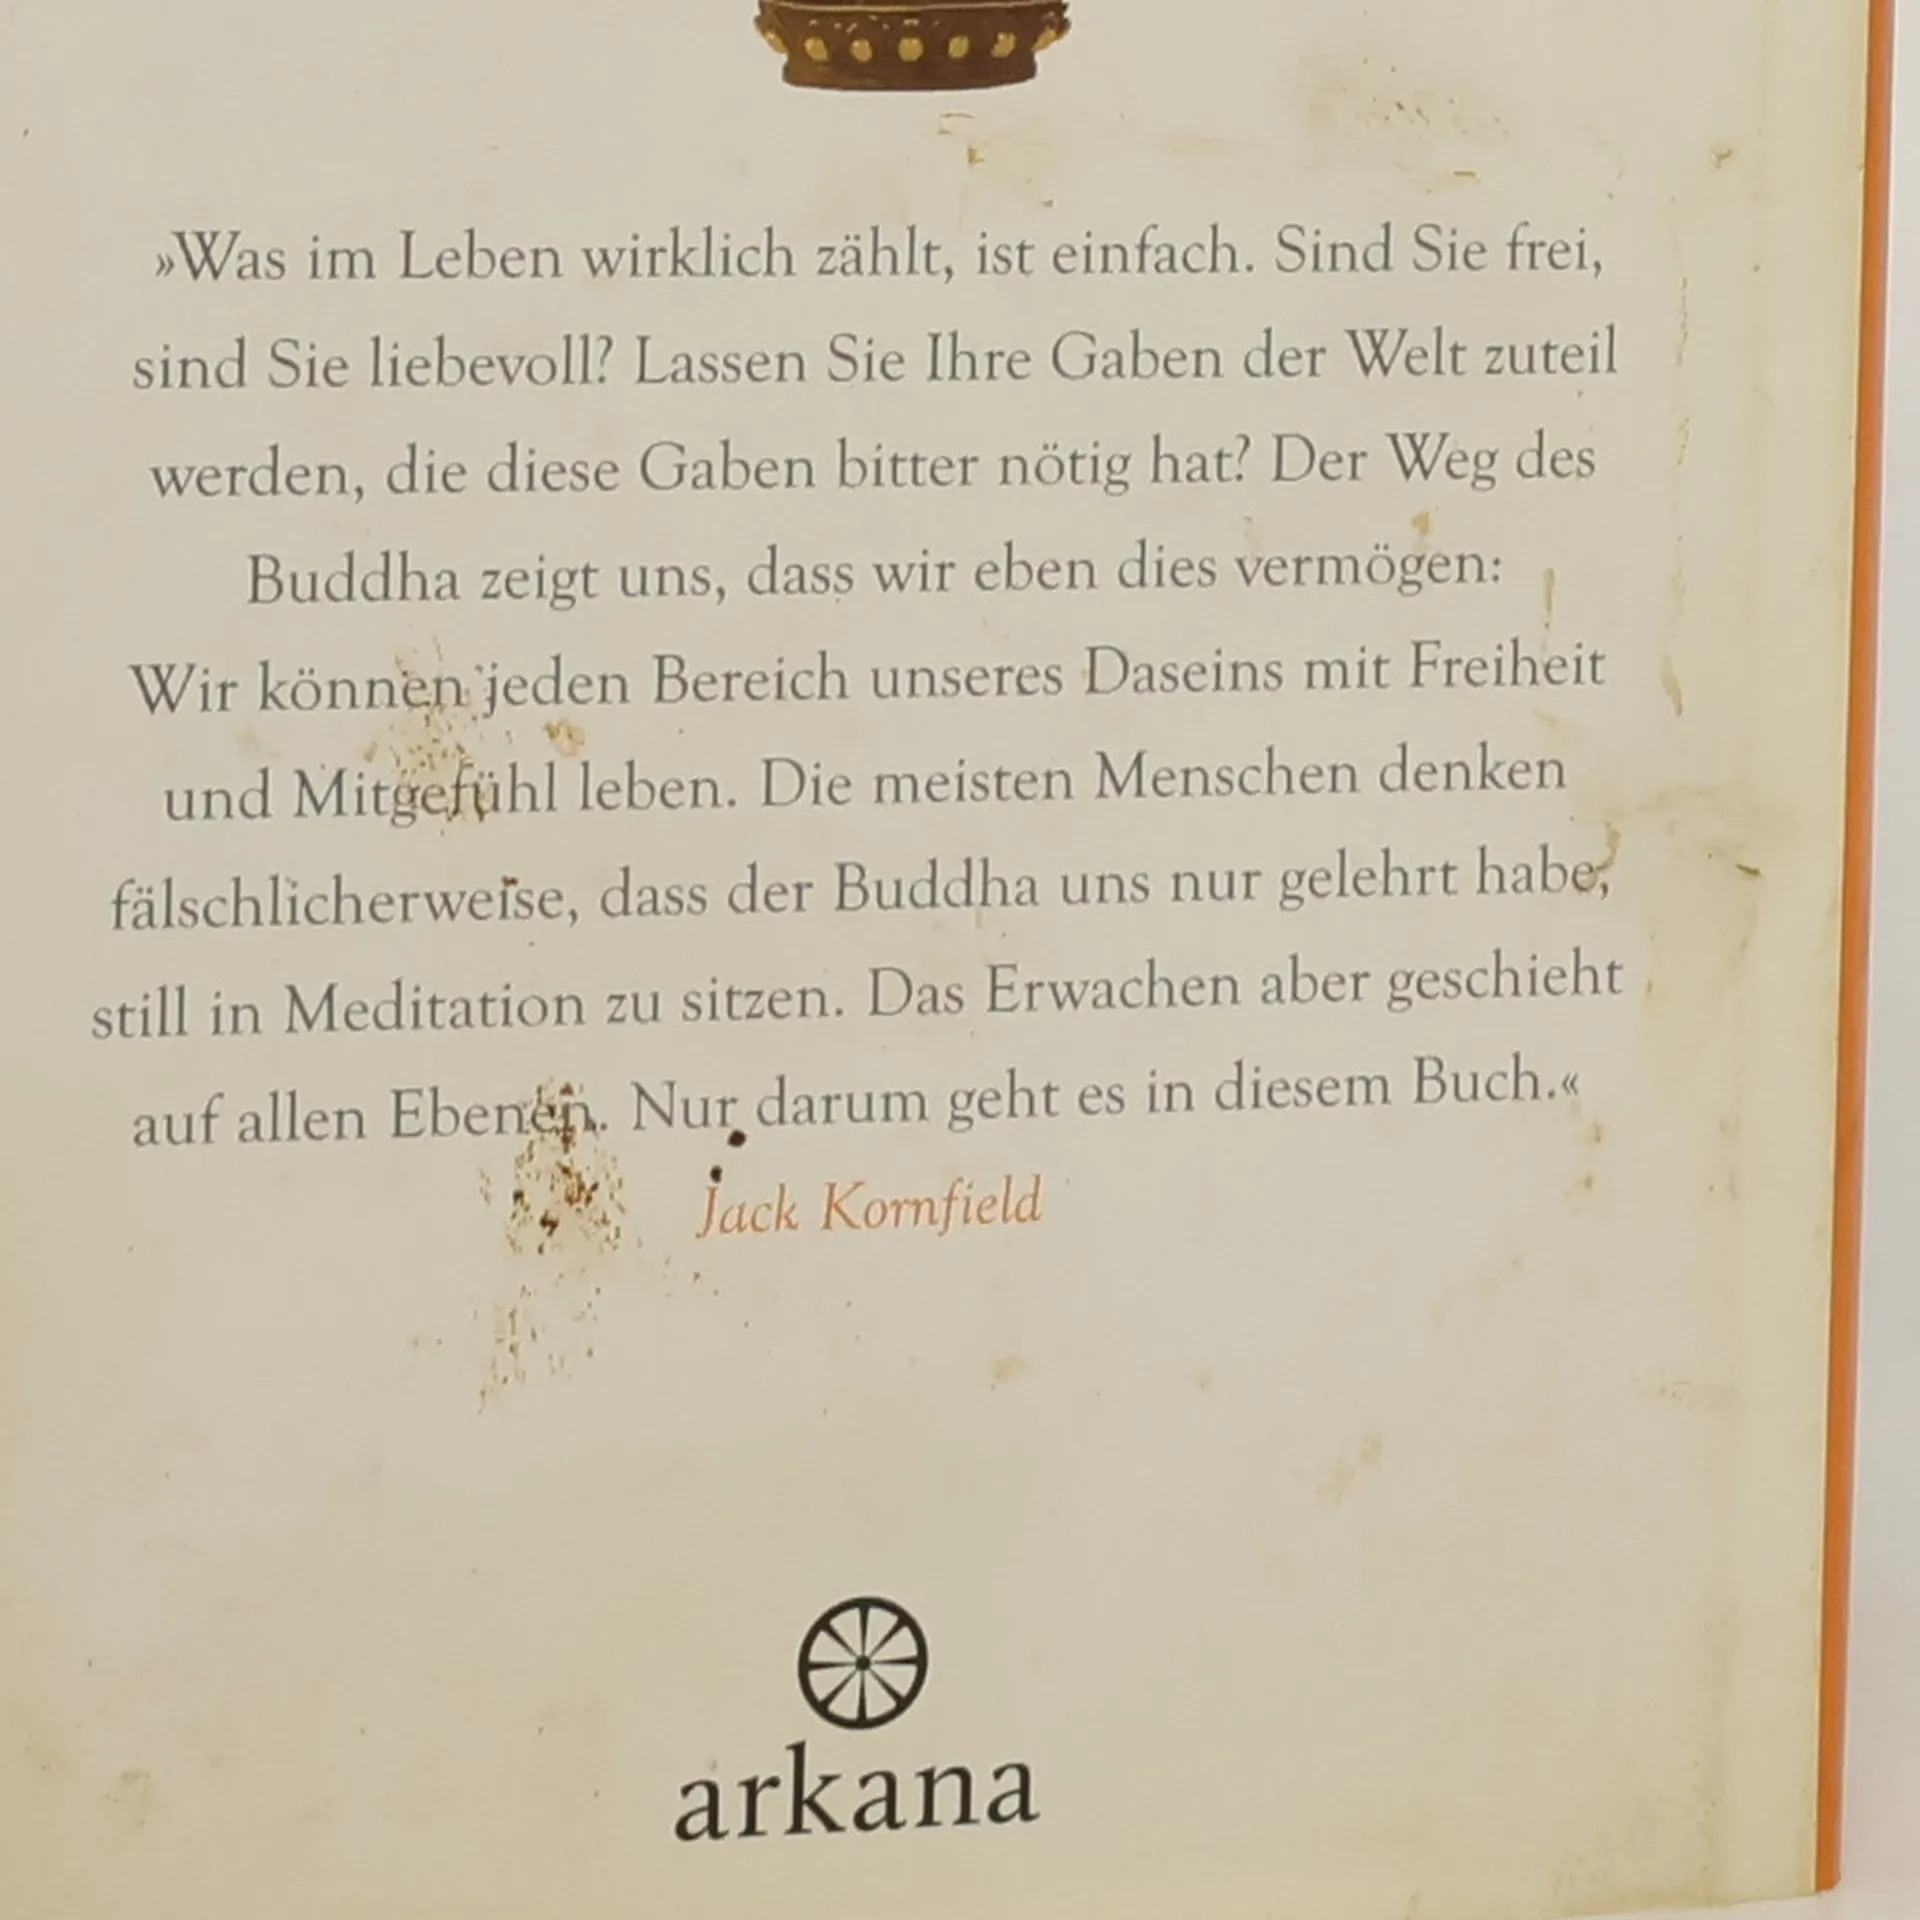 »Was im Leben wirklich zählt, ist einfach. Sind Sie frei,
sind Sie liebevoll? Lassen Sie Ihre Gaben der Welt zuteil
werden, die diese Gaben bitter nötig hat? Der Weg des
Buddha zeigt uns, dass wir eben dies vermögen:
Wir können jeden Bereich unseres Daseins mit Freiheit
und Mitgefühl leben. Die meisten Menschen denken
fälschlicherweise, dass der Buddha uns nur gelehrt habe,
still in Meditation zu sitzen. Das Erwachen aber geschieht
auf allen Ebenen. Nur darum geht es in diesem Buch.«
Jack Kornfield
arkana